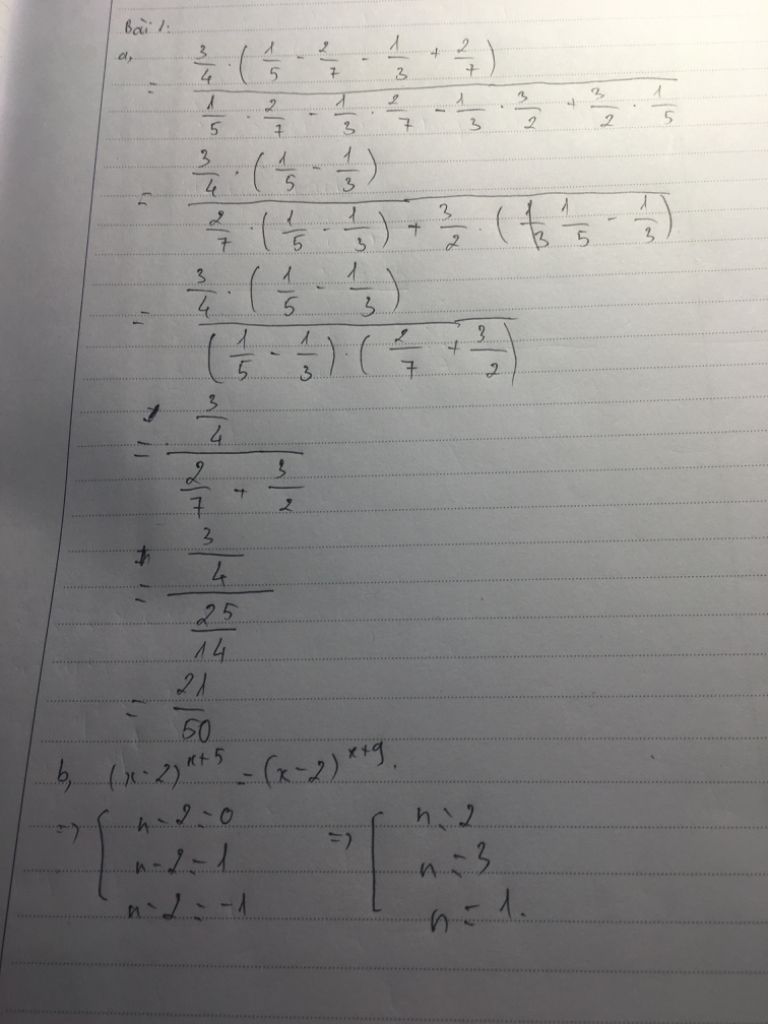 Bài 1:
a, = (3/4 · (1/5 - 2/7 - 1/3 + 2/7)) / (1/5 · 2/7 - 1/3 · 2/7 - 1/3 · 3/2 + 3/2 · 1/5)
= (3/4 · (1/5 - 1/3)) / (2/7 · (1/5 - 1/3) + 3/2 · (1/5 - 1/3))
= (3/4 · (1/5 - 1/3)) / ((1/5 - 1/3) · (2/7 + 3/2))
= (3/4) / (2/7 + 3/2)
= (3/4) / (25/14)
= 21/50
b, (x-2)^(x+5) = (x-2)^(x+9).
=> [ x-2=0 => [ x=2
x-2=1 x=3
x-2=-1 x=1.